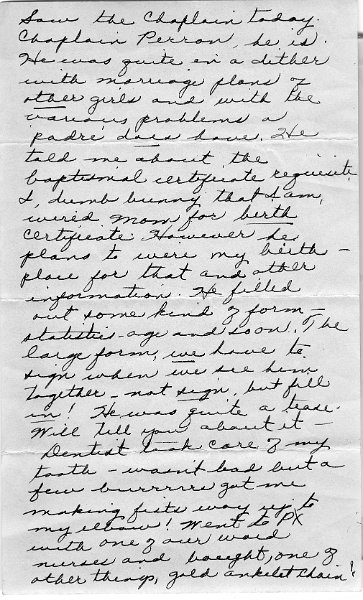 Saw the Chaplain today.
Chaplain Perron, he is.
He was quite in a dither
with marriage plans of
other girls and with the
various problems a
padré does have. He
told me about the
baptismal certificate requisite.
I, dumb bunny that I am,
wired Mom for birth
certificate. However he
plans to wire my birth-
place for that and other
information. He filled
out some kind of form -
statistics - age and so on. The
large form, we have to
sign when we see him
together - not sign, but fill
in! He was quite a tease.
Will tell you about it -
Dentist took care of my
tooth - wasn't bad but a
few burrrrrs got me
making fists way up to
my elbow! Went to PX
with one of our ward
nurses and bought, one of
other things, gold anklet chain!